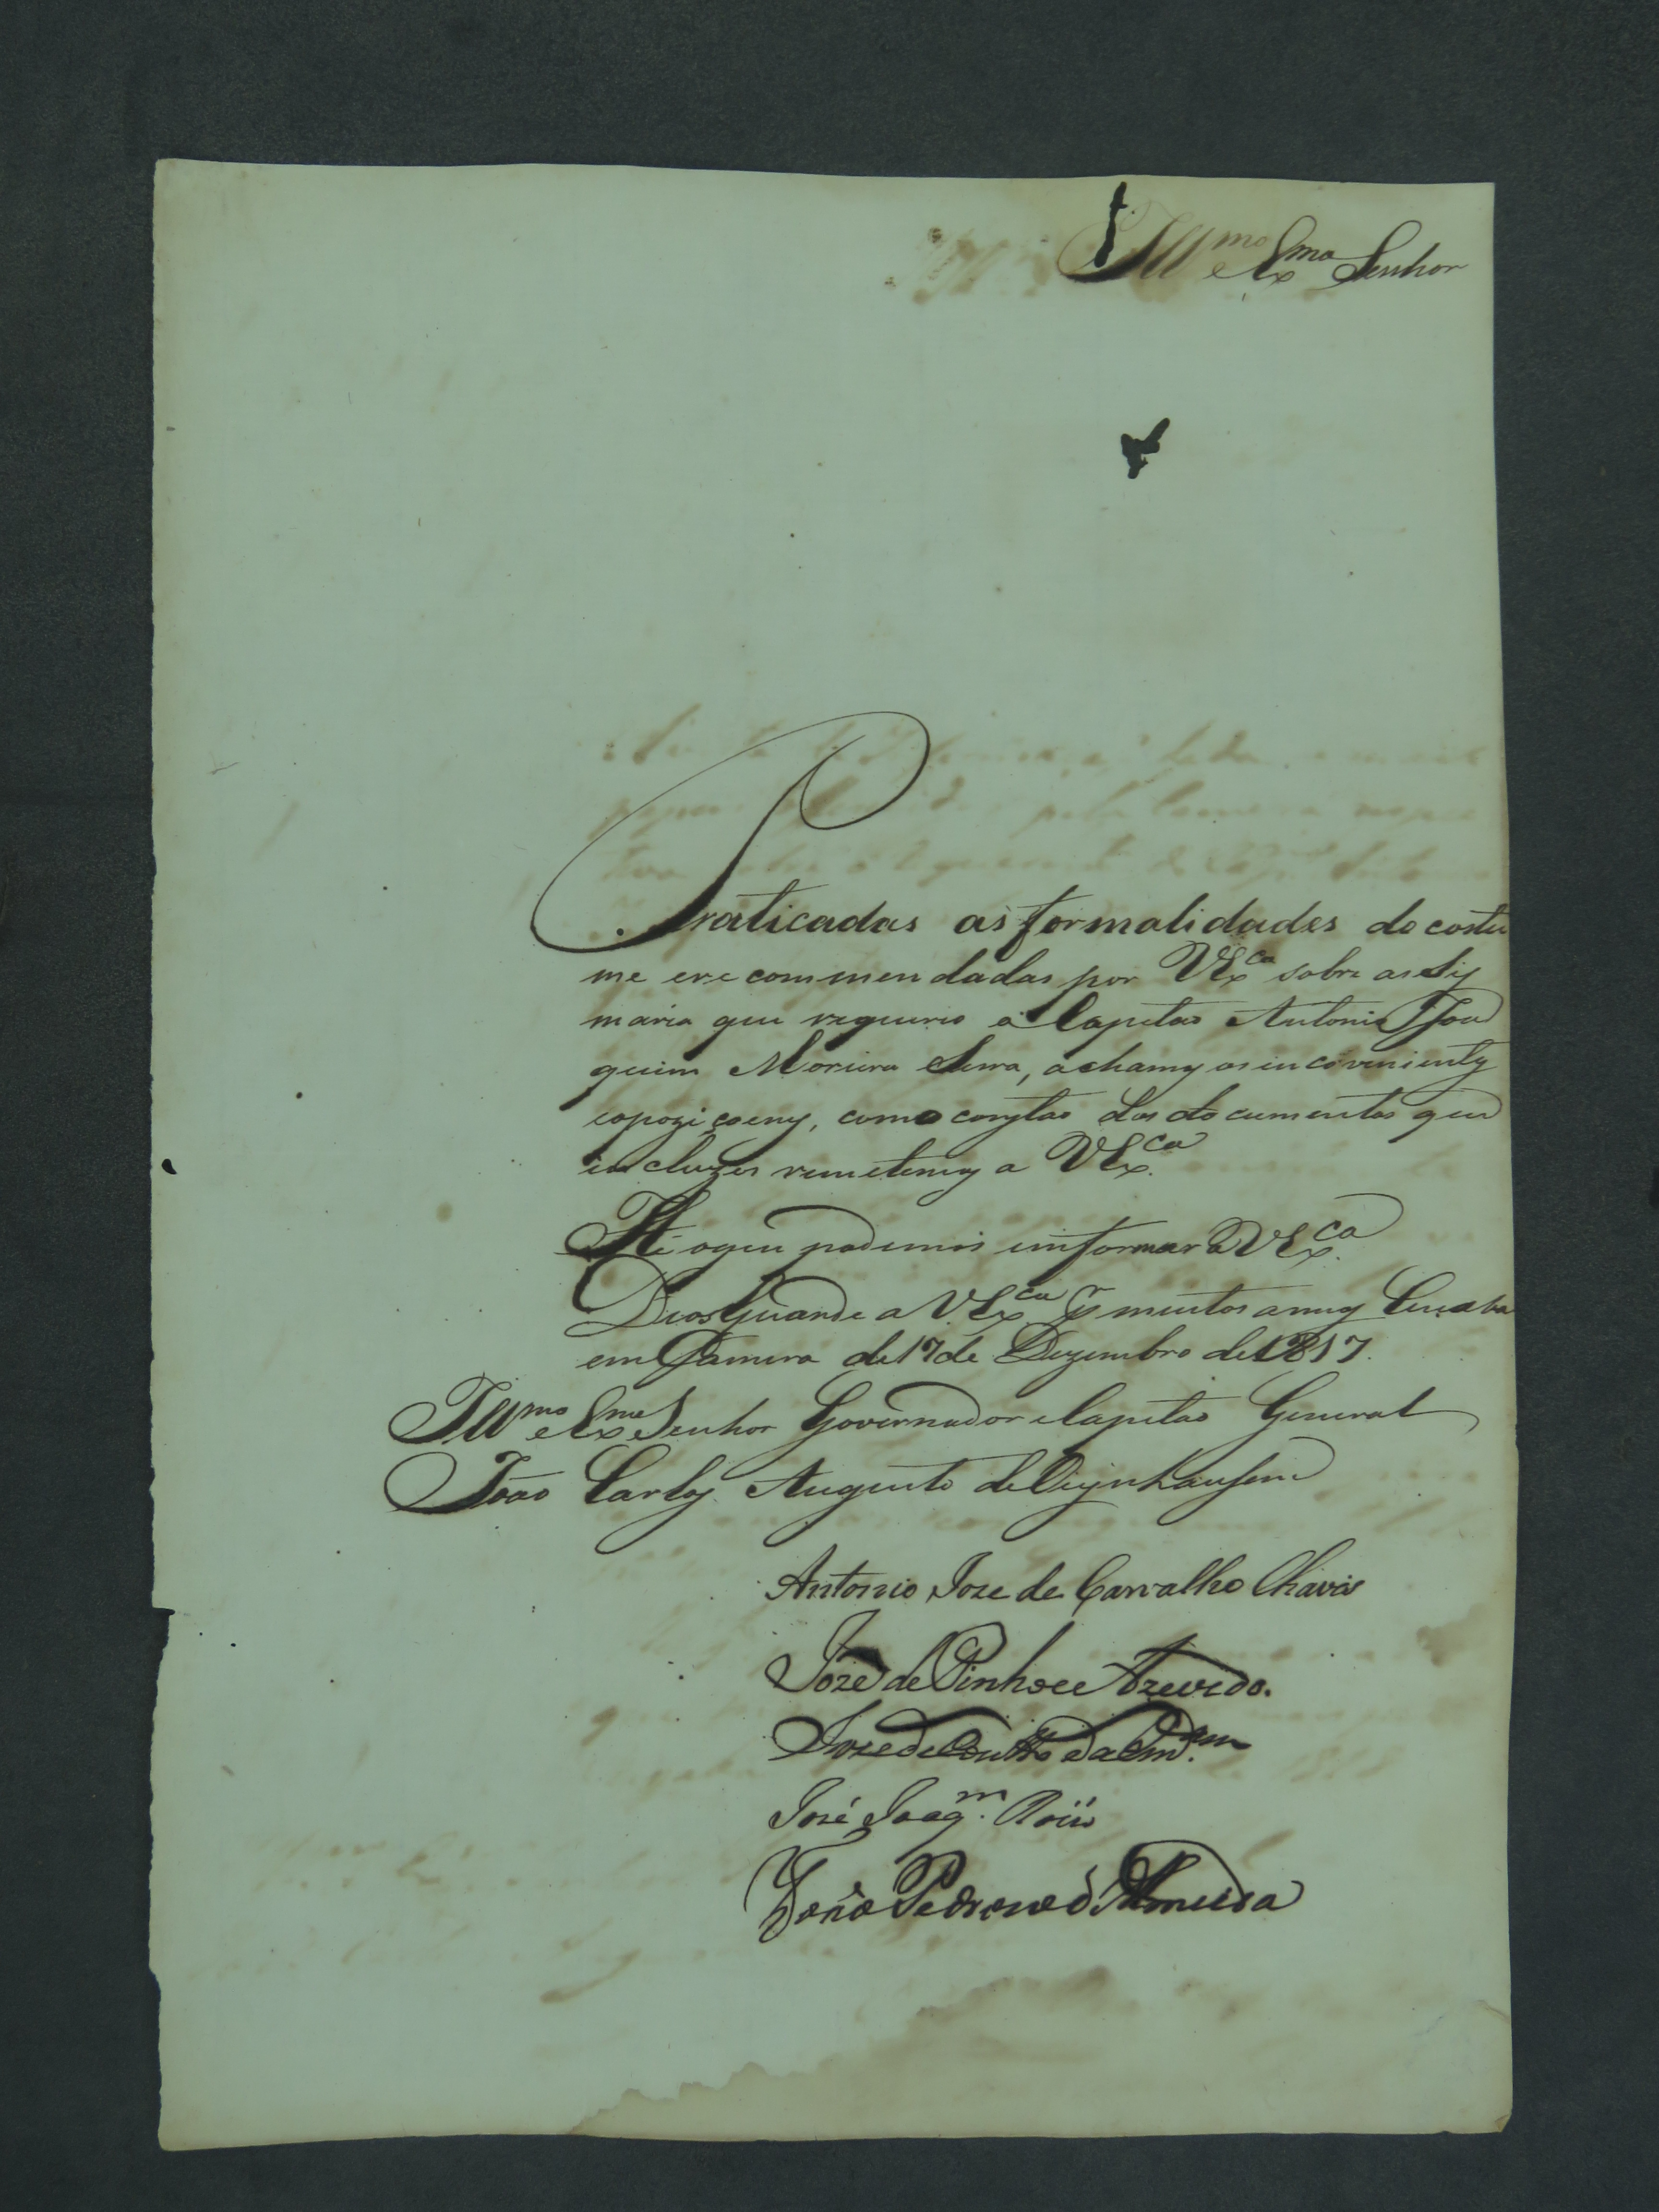 Ill.mo e Ex.mo Senhor
Praticadas as formalidades do costu
me e recommendadas por V Ex.ca sobre a sis
maria que requerio o Capitão Antonio Joa
quim Moreira Serra, achamos os incoveniente
e opoziçoens, como constão dos documentos que
incluzos remetemos a V Ex.ca
Hé o que podemos imformar a V Ex.ca
Deos Guarde a V. Ex.ca p.r muitos annos Cuiaba
em Camera de 17 de Dezembro de 1817.
Ill.mo e Ex.mo Senhor Governador e Capitão General
João Carlos Augusto de Oeynhausem
Antonio Joze de Carvalho Chaves
Joze de Pinho e Azevedo.
Joze de Couto da
José Joaq.m Roiz
João Pedrozo d Almeida